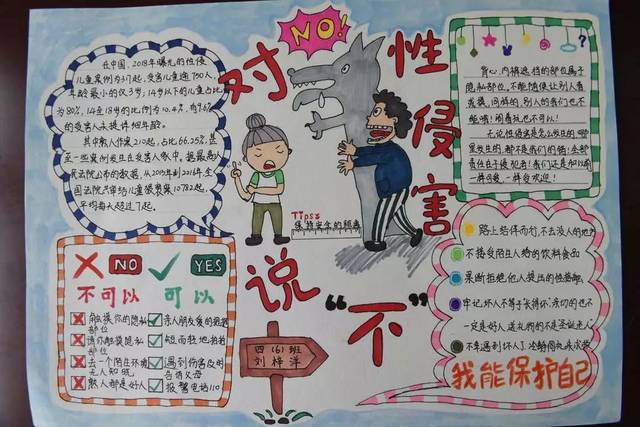 NO!
对性侵害
说“不”
在中国,2018年曝光的性侵
儿童案例为317起,受害儿童超750人,
年龄最小的仅3岁,14岁以下的儿童占比
为80%,14至18岁的比例为10.4%,
的受害人未提详细年龄。
其中熟人作案210起,占比66.25%,甚
至一些案例发生在受害人家中。据最高人
民法院公布的数据,从2013年到2016年全
国法院共审结儿童猥亵案10782起,
平均每天超过7起。
背心、内裤遮挡的部位属于
隐私部位,不能随便让别人看
或摸,同样的,别人的我们也不
能哦!闹着玩也不可以!
无论性侵害是怎么发生的,哪
里发生的,都不是我们的错!全部
责任在于侵犯者!我们还是和从前
一样可爱、一样受欢迎!
Tips:
保持安全的距离
NO YES
不可以 可以
触摸你的隐私
部位
请你触摸隐私
部位
去一个陌生环境
无人知晓
熟人都是好人
亲人朋友爱的拥抱
短而轻地拍拍
遇到伤害及时
告诉父母
报警电话110
四(6)班
刘梓洋
路上结伴而行,不去没人的地方
不接受陌生人给的饮料食品
果断拒绝他人提出的性要求
牢记,坏人不等于长得坏,亲切的也不
一定是好人,送礼物的不是圣诞老人
不幸遇到坏人了,冷静同他来求救
我能保护自己